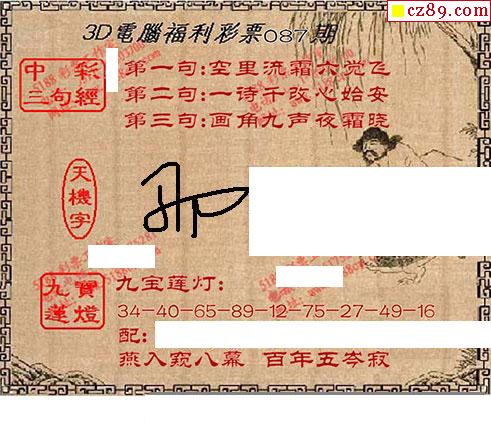 cz89.com
3D電腦福利彩票087期
中彩
三句經
第一句:空里流霜不觉飞
第二句:一诗千改心始安
第三句:画角九声夜霜晓
天機字
九寶
蓮燈
九宝莲灯:
34-40-65-89-12-75-27-49-16
配:
燕入窥八幕 百年五岑寂